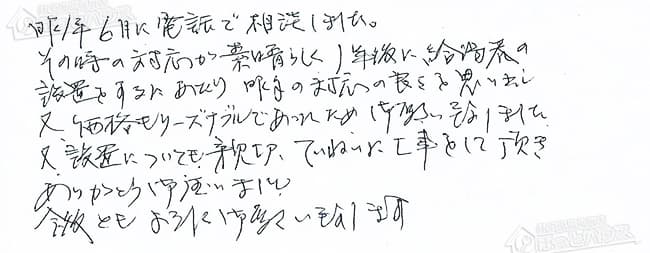 昨年6月に電話で相談しました。
その時の対応が素晴らしく1年後に給湯器の
設置をするにあたり昨年の対応の良さを思い出し
又価格もリーズナブルであったため御願い致しました
又設置についても親切、ていねいに工事をして頂き
ありがとう御座いました
今後ともよろしく御願い致します